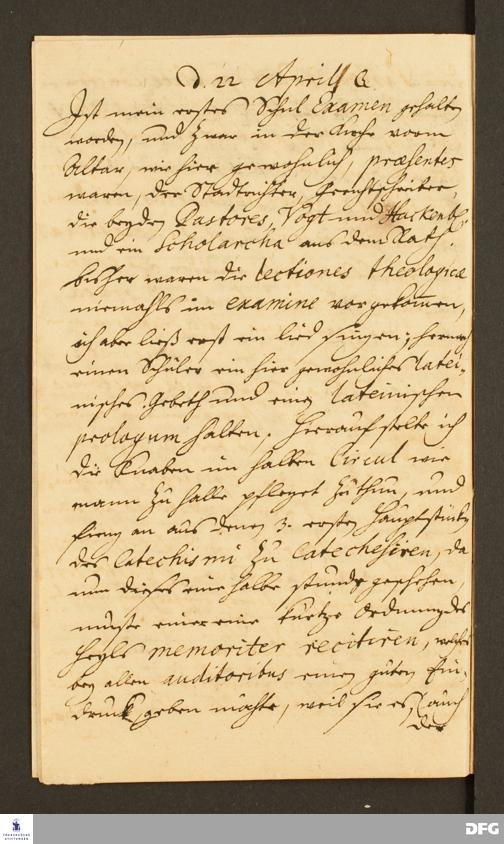 D. 22 April
Ist mein erstes Schul Examen gehalten
worden, und zwar in der Kirche vorm
Altar, wie hier gewöhnlich, præsentes
waren, der Stadtrichter, Gerichtschreiber,
die beyden Pastores, Vogt und Hackenb.
und ein Scholarcha aus dem Rath.
bisher waren die lectiones theologicæ
niemahls im examine vorgekommen,
ich aber ließ erst ein lied singen, hernach
einen Schüler ein hier gewöhnliches latei-
nisches Gebeth und einen lateinischen
prologum halten. Hierauf stelte ich
die Knaben im halben Circul wie
mann zu Halle pfleget zu thun, und
fieng an aus denen 3. ersten Hauptstücken
des Catechismi zu Catechesiren, da
nun dieses eine halbe stunde geschehen,
muste einer eine kurtze Ordnung des
Heyls memoriter recitiren, welches
bey allen auditoribus einen guten Ein-
druck geben mochte, weil sie es auch
der
FRANCKESCHE STIFTUNGEN
DFG